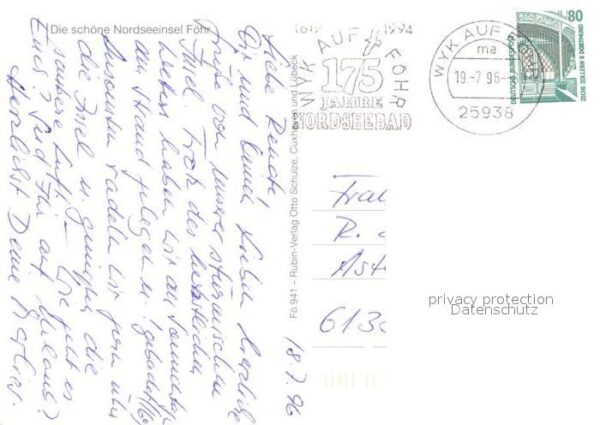 Die schöne Nordseeinsel Föhr
1819 1994
WYK AUF FÖHR
175
JAHRE
NORDSEEBAD
WYK AUF FÖHR
ma
19.-7.96-
25938
80
DEUTSCHE BUNDESPOST
ZECHE ZOLLERN II DORTMUND
Fö 941 – Rubin-Verlag Otto Schulze, Cuxhaven und Lübeck
18.7.96
Liebe
Dir und Lieben herzliche
Grüße von unserer stürmischen
Insel. Trotz des herbstlichen
Wetters haben wir am Samstag
am Strand gelegen u. gebadet!
Ansonsten radeln wir gern über
die Insel u. genießen die
saubere Luft. – Wie geht es
Euch? Seid Ihr auf Urlaub?
Herzlichst Deine
Frau
R.
613
privacy protection
Datenschutz